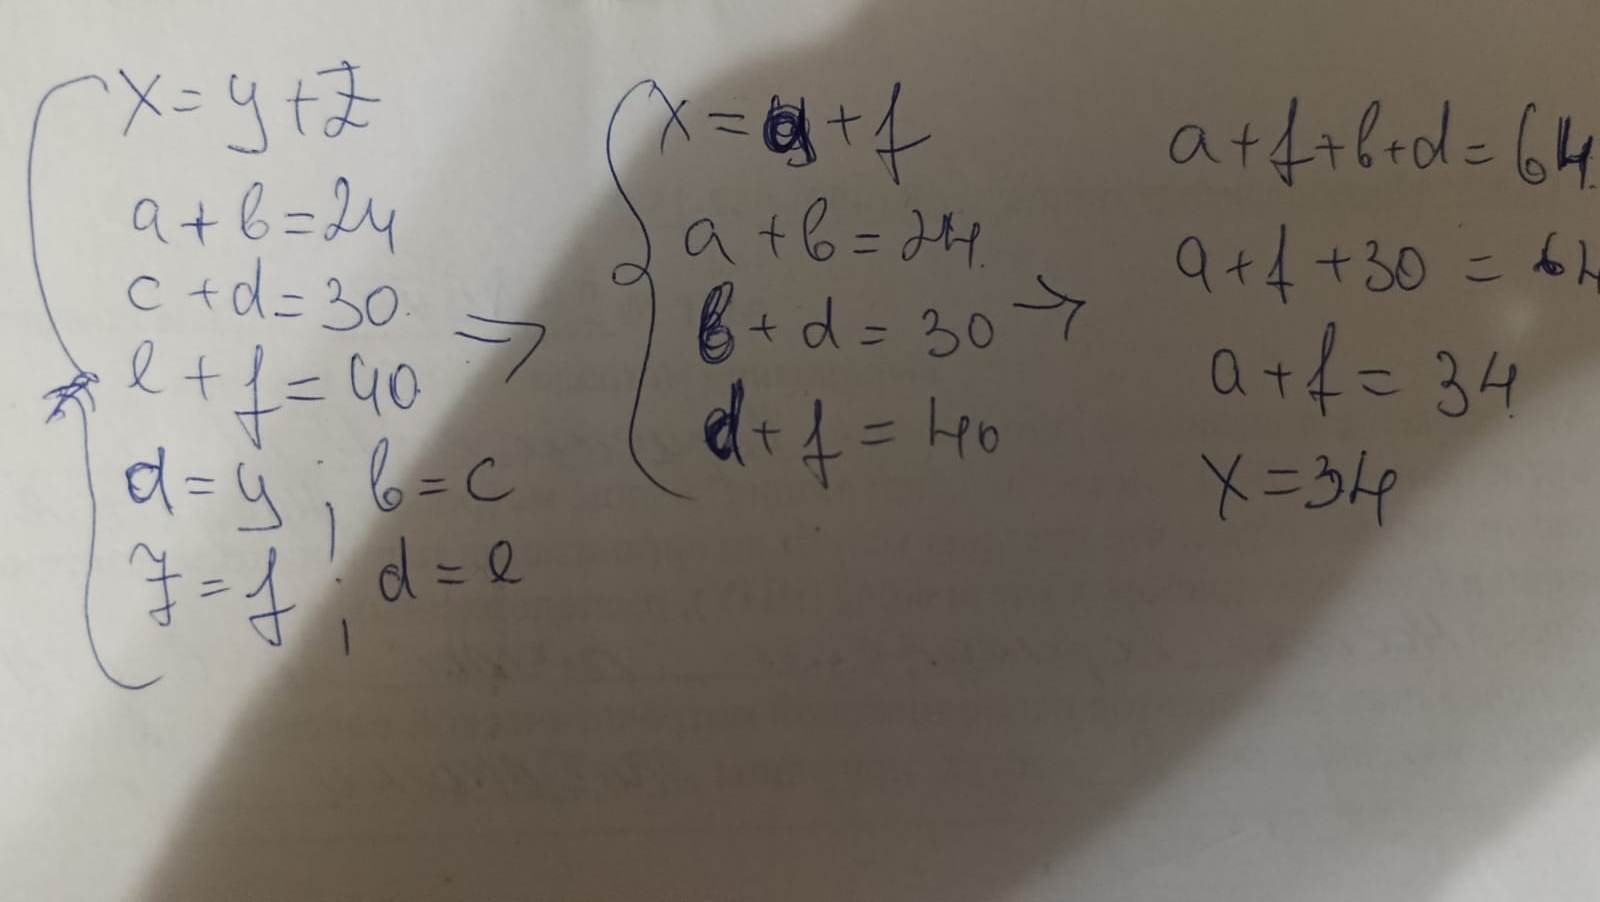 x = y + z
a + b = 24
c + d = 30
e + f = 40
d = y ; b = c
z = f ; d = e
⇒
x = a + f
a + b = 24
b + d = 30
d + f = 40
→
a + f + b + d = 64
a + f + 30 = 64
a + f = 34
x = 34